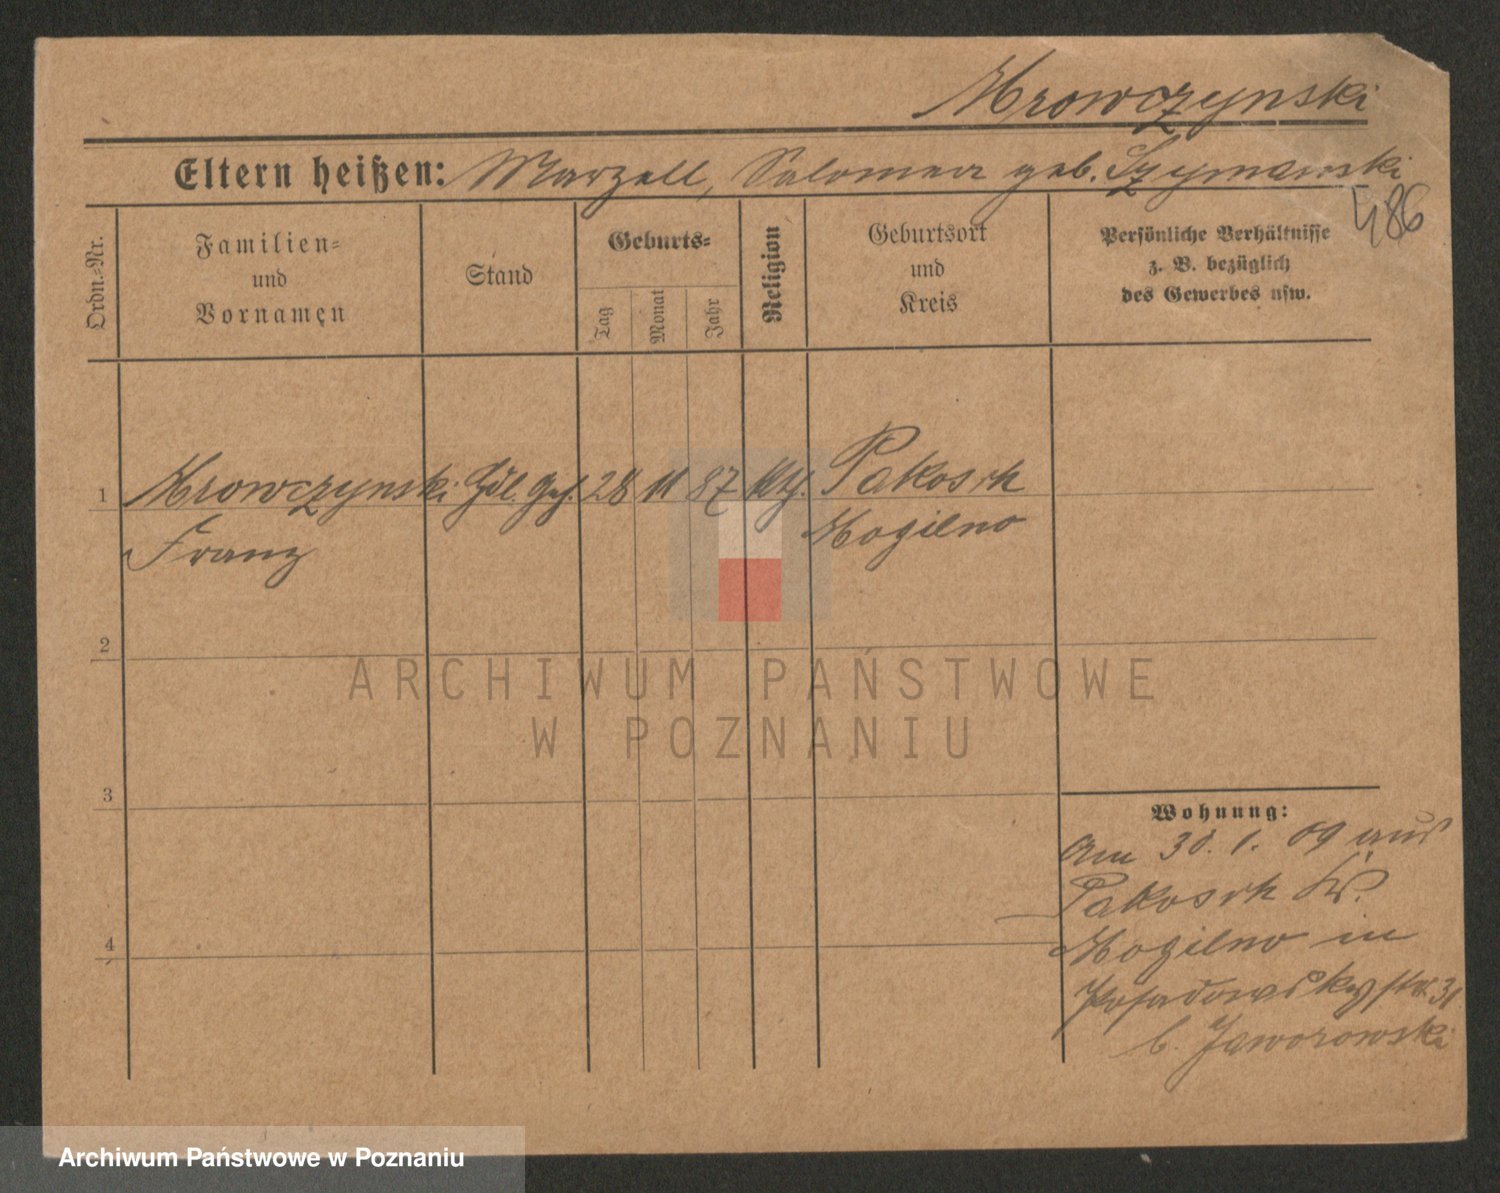 Mrowczynski
Eltern heißen: Marzell, Salomea geb. Szymanski
486
Ordn.=Nr.
Familien=
und
Vornamen
Stand
Geburts=
Tag
Monat
Jahr
Religion
Geburtsort
und
Kreis
Persönliche Verhältnisse
z. B. bezüglich
des Gewerbes usw.
1 Mrowczynski 28 11 87 kth. Pakosch
Franz Mogilno
2
ARCHIWUM PAŃSTWOWE
W POZNANIU
3
4
Wohnung:
Am 30. 1. 09 aus
Pakosch Kr.
Mogilno in
Posadowskystr. 31
b. Jaworowski
Archiwum Państwowe w Poznaniu